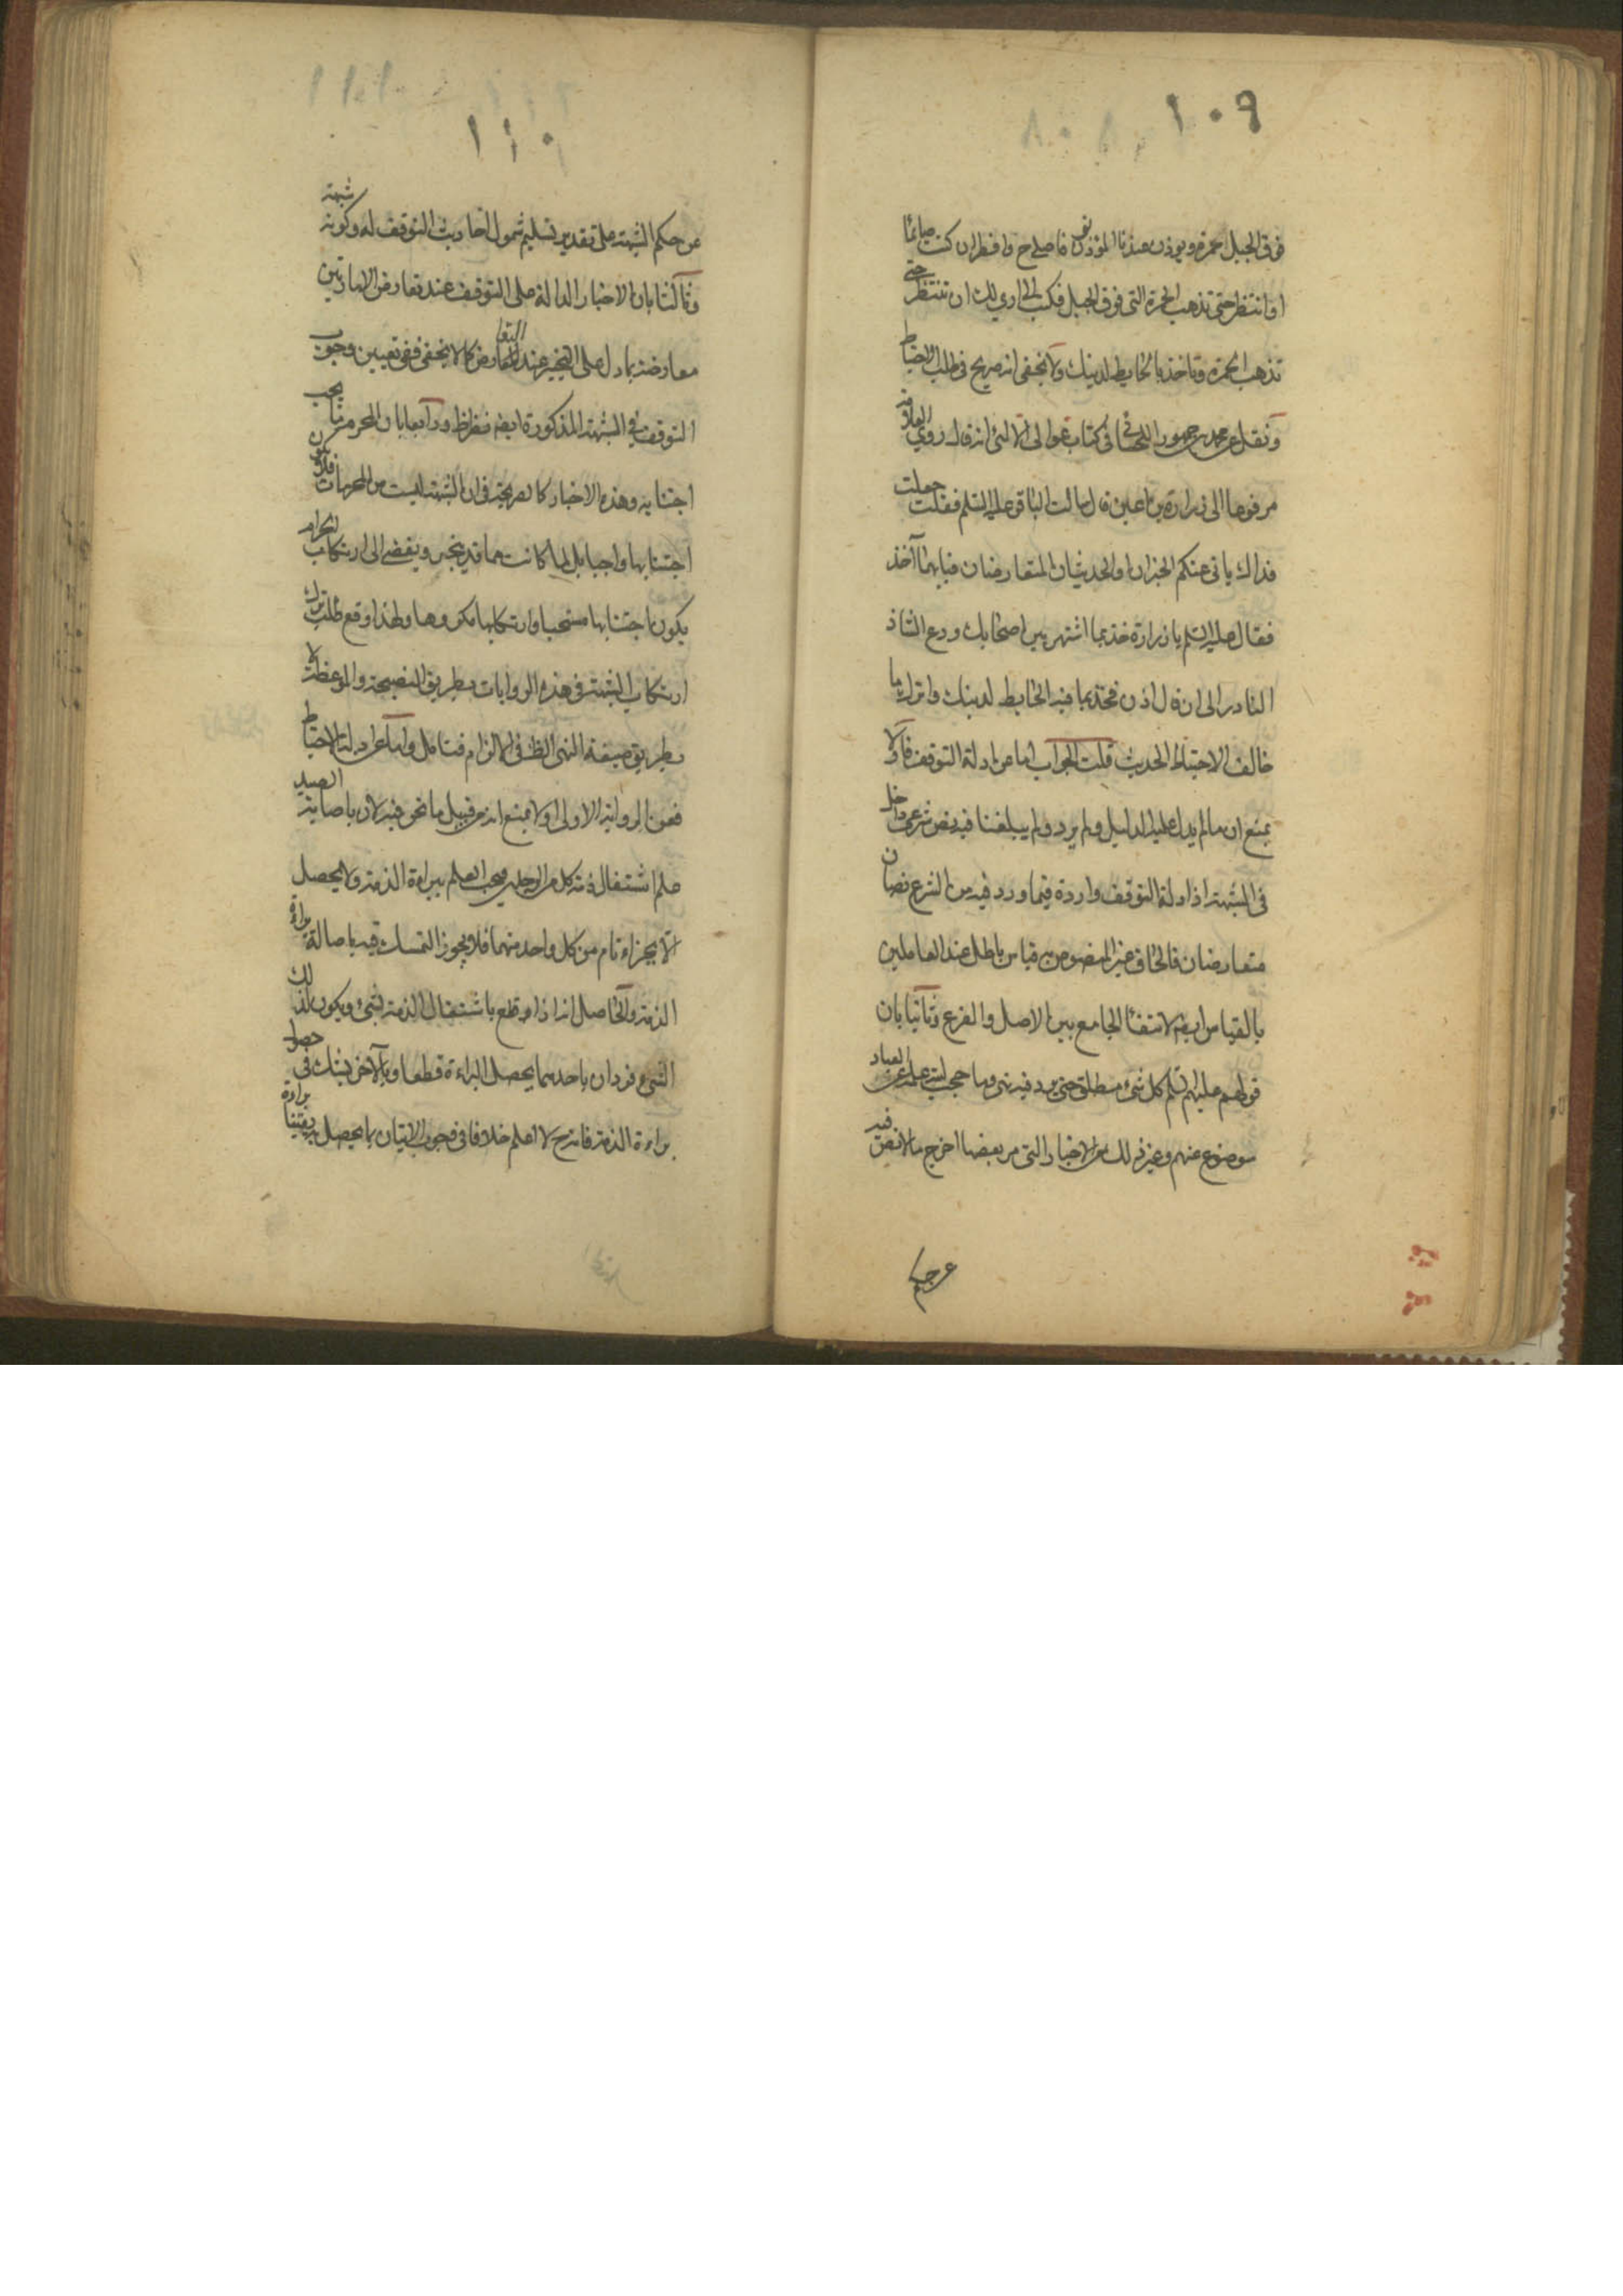 ١٠٩
فوق الجبل حمرة ويوذن عندنا المؤذنون فاصلي ح وافطر ان كنت صائما
او انتظر حتى تذهب الحمرة التي فوق الجبل فكتب الي ارى لك ان تنتظر حتى
تذهب الحمرة وتاخذ بالحايطة لدينك ولا يخفى انه صريح في طلب الاحتياط
ونقل عن محمد بن جمهور اللحسائي في كتاب غوالي اللآلئ انه قال روى العلامة
مرفوعا الى زرارة بن اعين قال سالت الباقر عليه السلم فقلت جعلت
فداك ياتي عنكم الخبران او الحديثان المتعارضان فبايهما آخذ
فقال عليه السلم يا زرارة خذ بما اشتهر بين اصحابك ودع الشاذ
النادر الى ان قال اذن فخذ بما فيه الحايطة لدينك واترك ما
خالف الاحتياط الحديث قلت الجواب اما عن ادلة التوقف فاولا
بمنع ان ما لم يدل عليه الدليل ولم يرد ولم يبلغنا فيه نص شرعي داخل
في الشبهة اذ ادلة التوقف واردة فيما ورد فيه من الشرع نصان
متعارضان فالحاق غير المنصوص به قياس باطل عند العاملين
بالقياس ايضا لانتفاء الجامع بين الاصل والفرع وثانيا بان
قولهم عليهم السلم كل شيء مطلق حتى يرد فيه نهي وما حجب الله علمه عن العباد
موضوع عنهم وغير ذلك من الاخبار التي مر بعضها اخرج ما لا نص فيه
عن حكم
١١٠
عن حكم الشبهة على تقدير تسليم شمول احاديث التوقف له وكونه شبهة
وثالثا بان الاخبار الدالة على التوقف عند تعارض الامارتين
معارضة بما دل على التخيير عند التعارض كما لا يخفى ففي تعيين وجوب
التوقف في الشبهة المذكورة ايضا نظر ظ ورابعا بان المحرم ما يجب
اجتنابه وهذه الاخبار كالصريحة في ان الشبهة ليست من المحرمات فلا يكون
اجتنابها واجبا بل لما كانت مما قد ينجر ويفضي الى ارتكاب الحرام
يكون اجتنابها مستحبا وارتكابها مكروها ولهذا وقع طلب ترك
ارتكاب الشبهة في هذه الروايات بطريق النصيحة والموعظة لا
بطريق صيغة النهي الظ في الالزام فتامل واما عن ادلة الاحتياط
فعن الرواية الاولى اولا بمنع انه من قبيل ما نحن فيه لان باصابة الصيد
علم اشتغال ذمة كل من الرجلين فيجب العلم ببراءة الذمة ولا يحصل
الا بجزاء تام من كل واحد منهما فلا يجوز التمسك فيه باصالة براءة
الذمة والحاصل انه اذا قطع باشتغال الذمة بشيء ويكون لذلك
الشيء فردان باحدهما يحصل البراءة قطعا وبالآخر يشك في حصول
براءة الذمة فانه ح لا اعلم خلافا في وجوب الاتيان بما يحصل به يقينا براءة